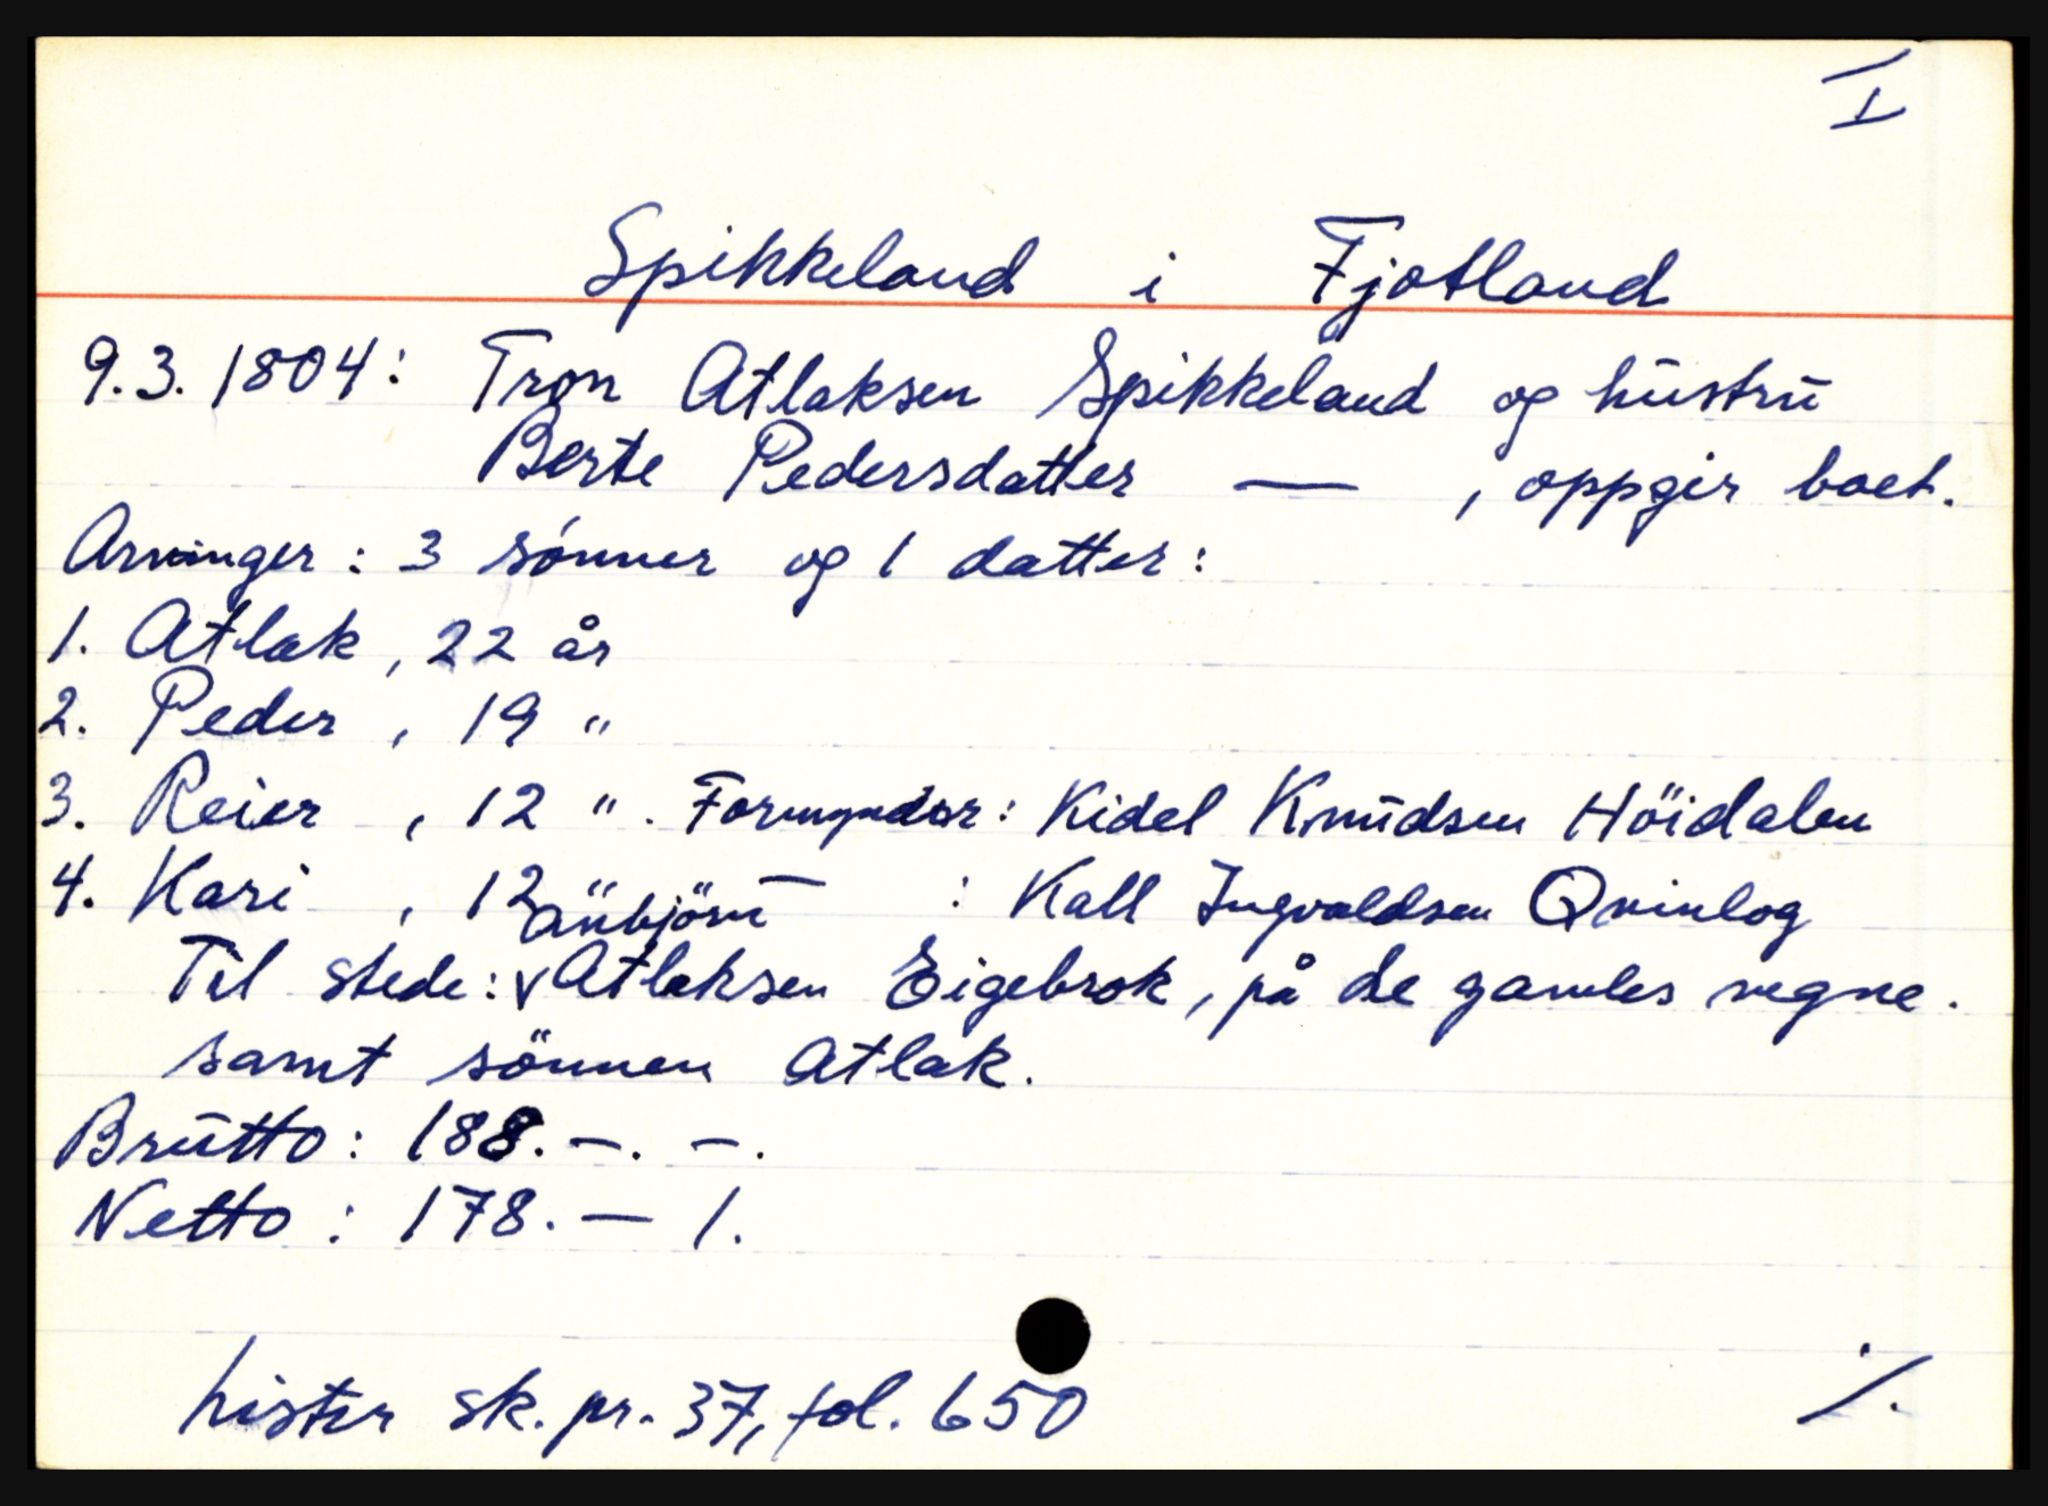 I
Spikkeland i Fjotland
9.3.1804: Tron Atlaksen Spikkeland og hustru
Berte Pedersdatter — , oppgir boet.
Arvinger: 3 sønner og 1 datter:
1. Atlak, 22 år
2. Peder, 19 "
3. Reier, 12 ". Formynder: Kidel Knudsen Höidalen
4. Kari, 12 " — : Kall Ingvaldsen Qvinlog
Til stede: v Atlaksen Eigebrok, på de gamles vegne.
samt sönnen Atlak.
Brutto: 188.-.-.
Netto: 178.— 1.
Lister sk. pr. 37, fol. 650
./.